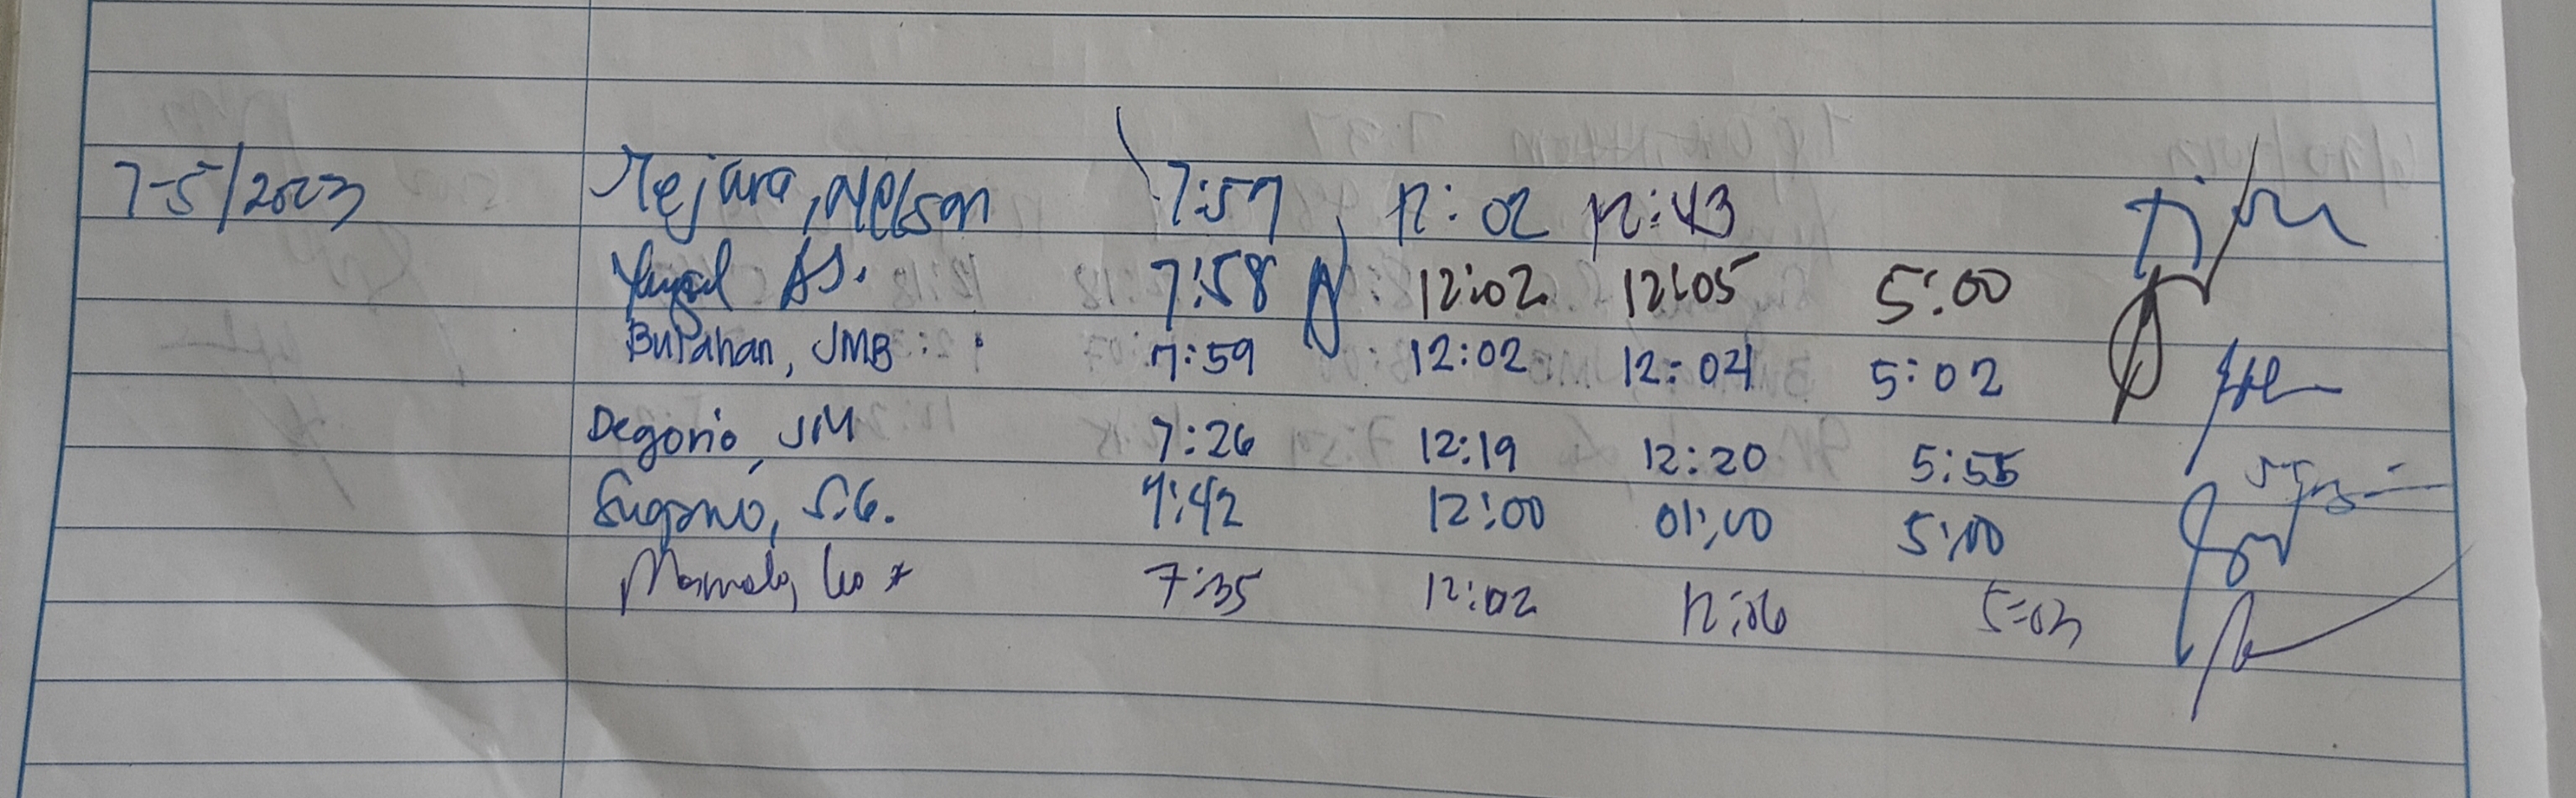 7-5/2023 Mejara, Nelson 7:57 12:02 12:43
AJ. 7:58 12:02 12:05 5:00
Bulahan, JMB 7:59 12:02 12:04 5:02
Degorio, JM 7:26 12:19 12:20 5:55
Sugano, S.G. 7:42 12:00 01:00 5:00
7:35 12:02 12:06 5:03